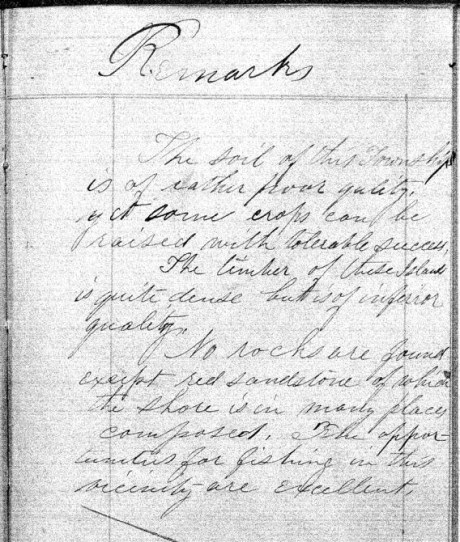 Remarks
The soil of this Township
is of rather poor quality.
yet some crops can be
raised with tolerable success,
The timber of these Islands
is quite dense but is of inferior
quality.
No rocks are found
except red sandstone of which
the shore is in many places
composed. The oppor-
tunities for fishing in this
vicinity are excellent.